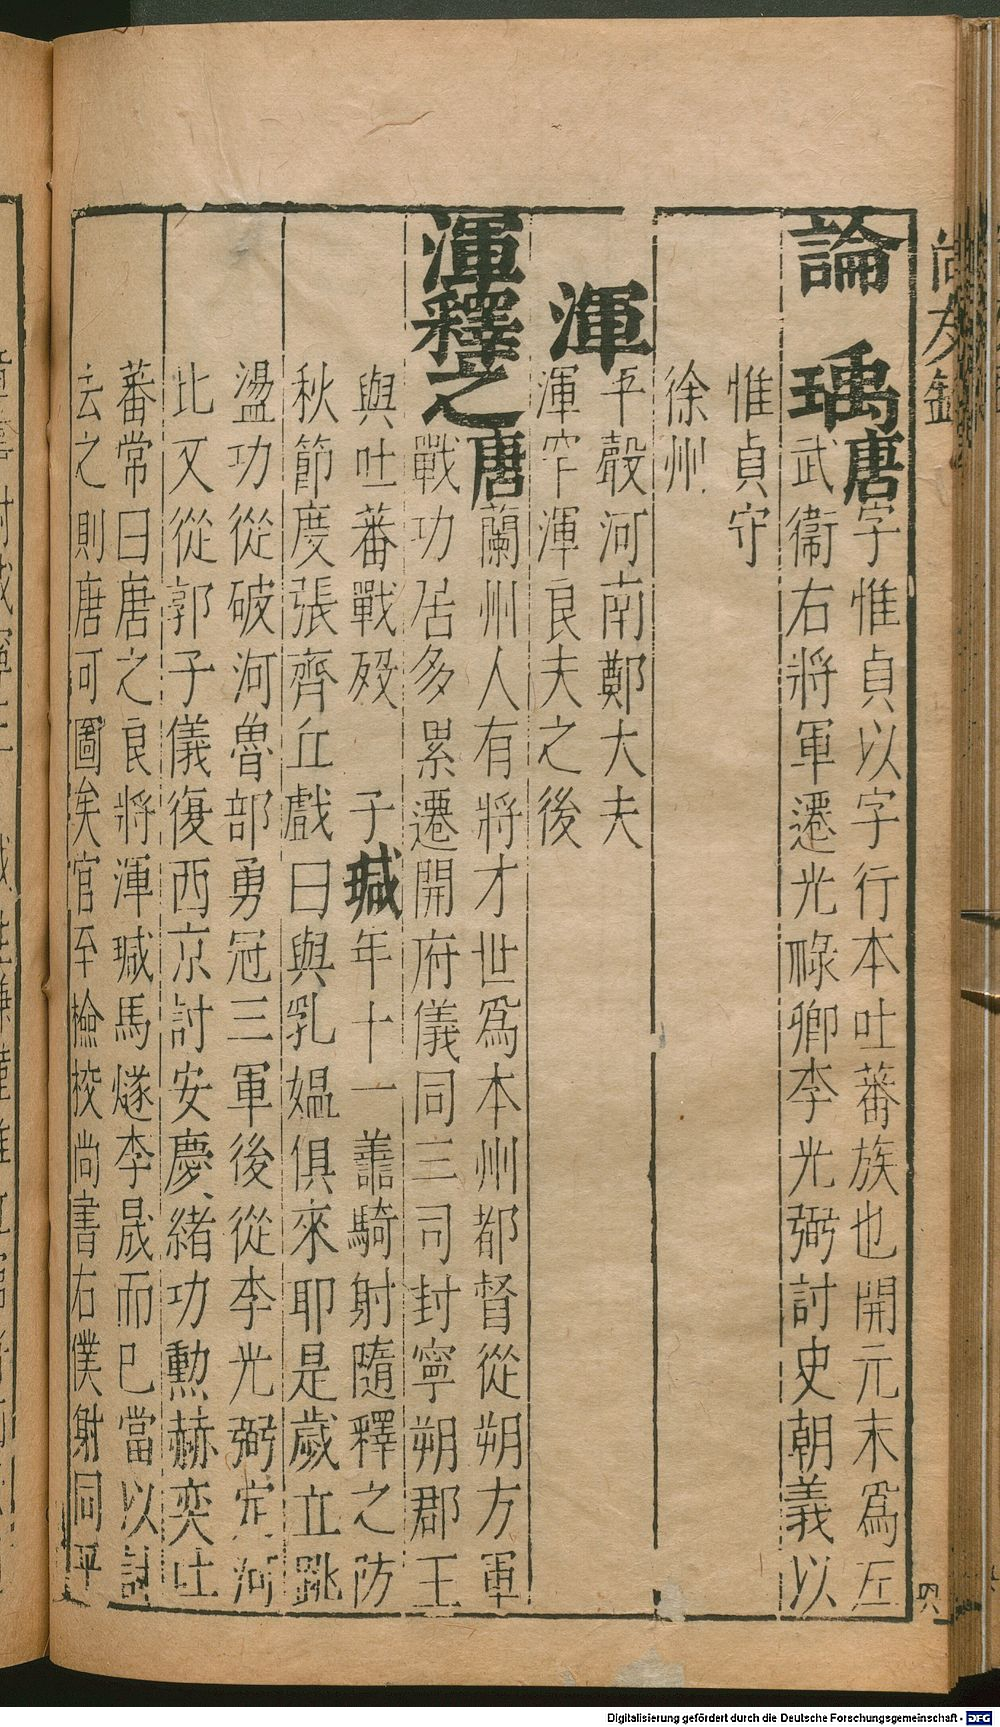 尚友錄
論瑀唐字惟貞以字行本吐蕃族也開元末為左
武衞右將軍遷光祿卿李光弼討史朝義以
惟貞守
徐州
渾平聲河南鄭大夫
渾罕渾良夫之後
渾釋之唐蘭州人有將才世為本州都督從朔方軍
戰功居多累遷開府儀同三司封寧朔郡王
與吐蕃戰歿 子瑊年十一善騎射隨釋之防
秋節度張齊丘戲曰與乳媼俱來耶是歲立跳
盪功從破河魯部勇冠三軍後從李光弼定河
北又從郭子儀復西京討安慶緒功勳赫奕吐
蕃常曰唐之良將渾瑊馬燧李晟而巳當以計
去之則唐可圖矣官至檢校尚書右僕射同平
Digitalisierung gefördert durch die Deutsche Forschungsgemeinschaft - DFG